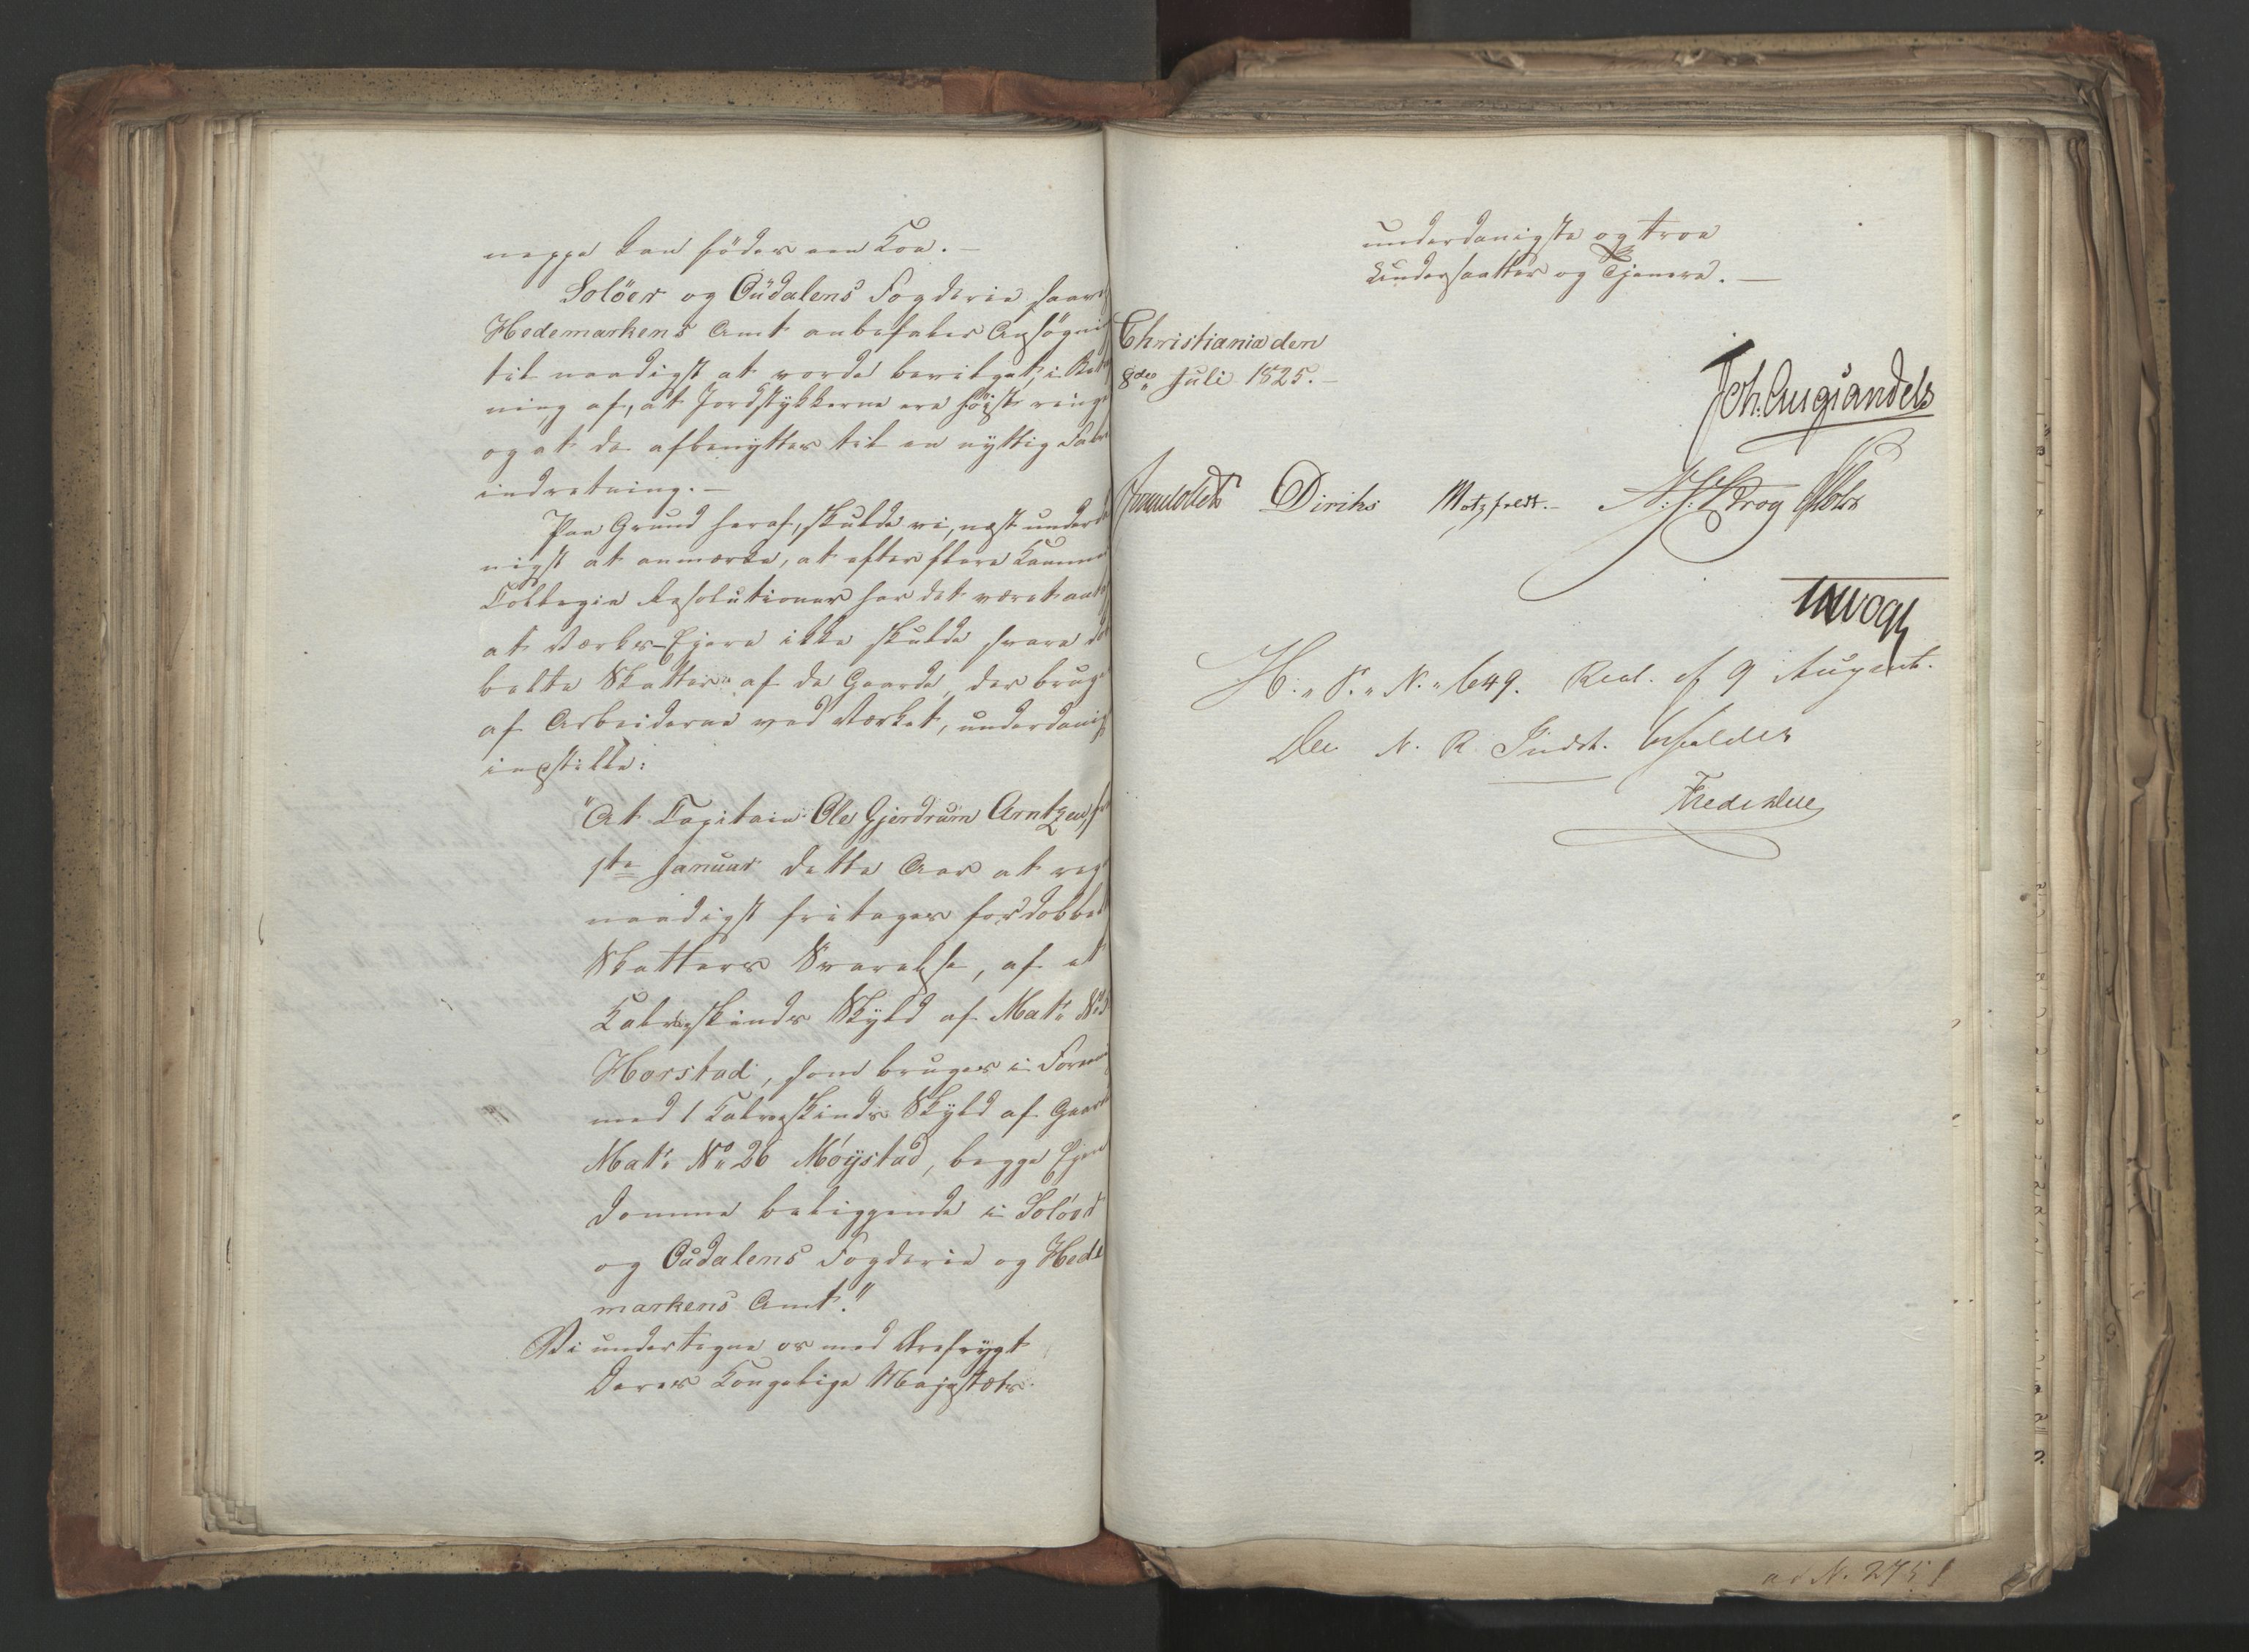 neppe kan födes een Koe. —
Solöer og Oüdalens Fogderie saavel
Hedemarkens Amt anbefaler Ansøgnin
til naadigst at vorde bevilget, i Betr
ning af, at Jordstykkerne ere höist ringe
og at de afbenyttes til en nyttig Fabri
indretning. —
Paa Grund heraf, skulde vi, næst underda
nigst at anmærke, at efter flere Kammer
Collegie Resolutioner har det været ant
at Værks-Ejere ikke skulde svare do
belte Skatter af de Gaarde, der bruges
af Arbeiderne ved Værket, underdanigst
indstille:
"At Capitain Ole Gjerdrum Arntzen, fra
1ste Januar dette Aar at regne
naadigst fritages for dobbelt
Skatters Svarelse, af et
Kalvskinds Skyld af Mat: No
Horstad, som bruges i Foreni
med 1 Kalvskinds Skyld af Gaard
Mat: No 26 Möystad, begge Ejen
domme beliggende i Solöer
og Oudalens Fogderie og Hede
markens Amt."
Vi undertegne os med Ærefrygt
Deres Kongelige Majestæts
underdanigste og troe
Undersaatter og Tjenere. —
Christiania den
8de Juli 1825. —
Joh. Aug: Sandels
Sommerhielm Diriks Motzfeldt. — N. J. L. Krog Holst
Vogt
H. S. N. 649. Res. af 9 August.
Den N. R. Indst. bifaldes
Fredr. Due
ad N. 2751